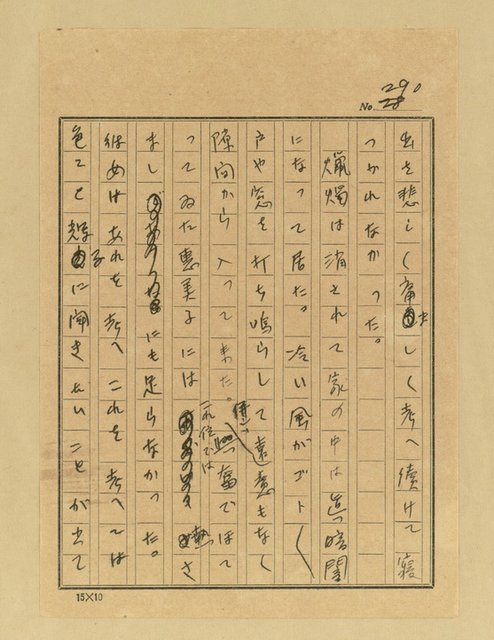 No. 29
28
出を悲しく奮ましく考へ続けて寝
つかれなかった。
蠟燭は消されて家の中は真っ暗闇
になって居た。冷い風がゴト〱
戸や窓を打ち鳴らして遠慮もなく
隙間から入って来た。奮でほて
って ゐた恵美子には これ位では 熱さ
ましにも足らなかった。
 はあれを考へこれを考へては
色々と 子に聞きたいことが出て
15×10